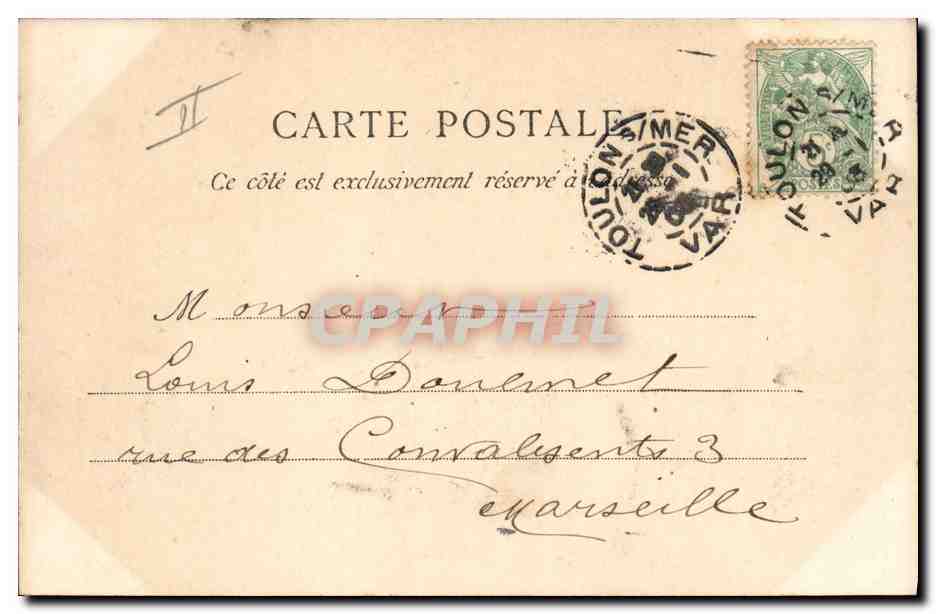 II
CARTE POSTALE
Ce côté est exclusivement réservé à l'adresse
TOULON S/MER
VAR
TOULON S/MER
VAR
Monsieur
CPAPHIL
Louis
rue des Convalesents 3
Marseille